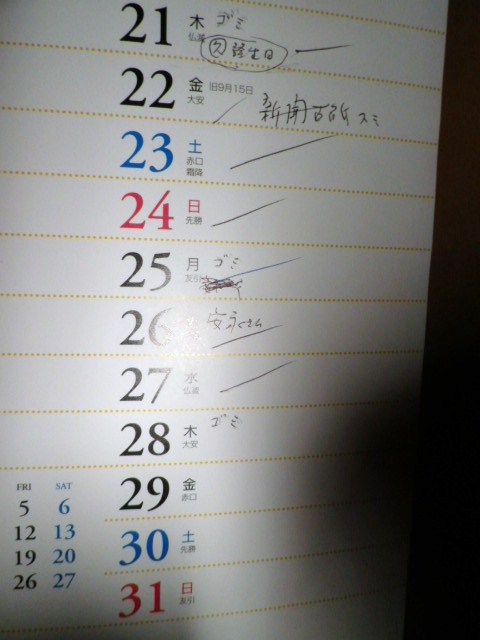 21 木 仏滅 ゴミ
久 誕生日
22 金 大安 旧9月15日
新聞
23 土 赤口 霜降
24 日 先勝
25 月 友引 ゴミ
26
27 水 仏滅
28 木 大安 ゴミ
29 金 赤口
30 土 先勝
31 日 友引
FRI SAT
5 6
12 13
19 20
26 27